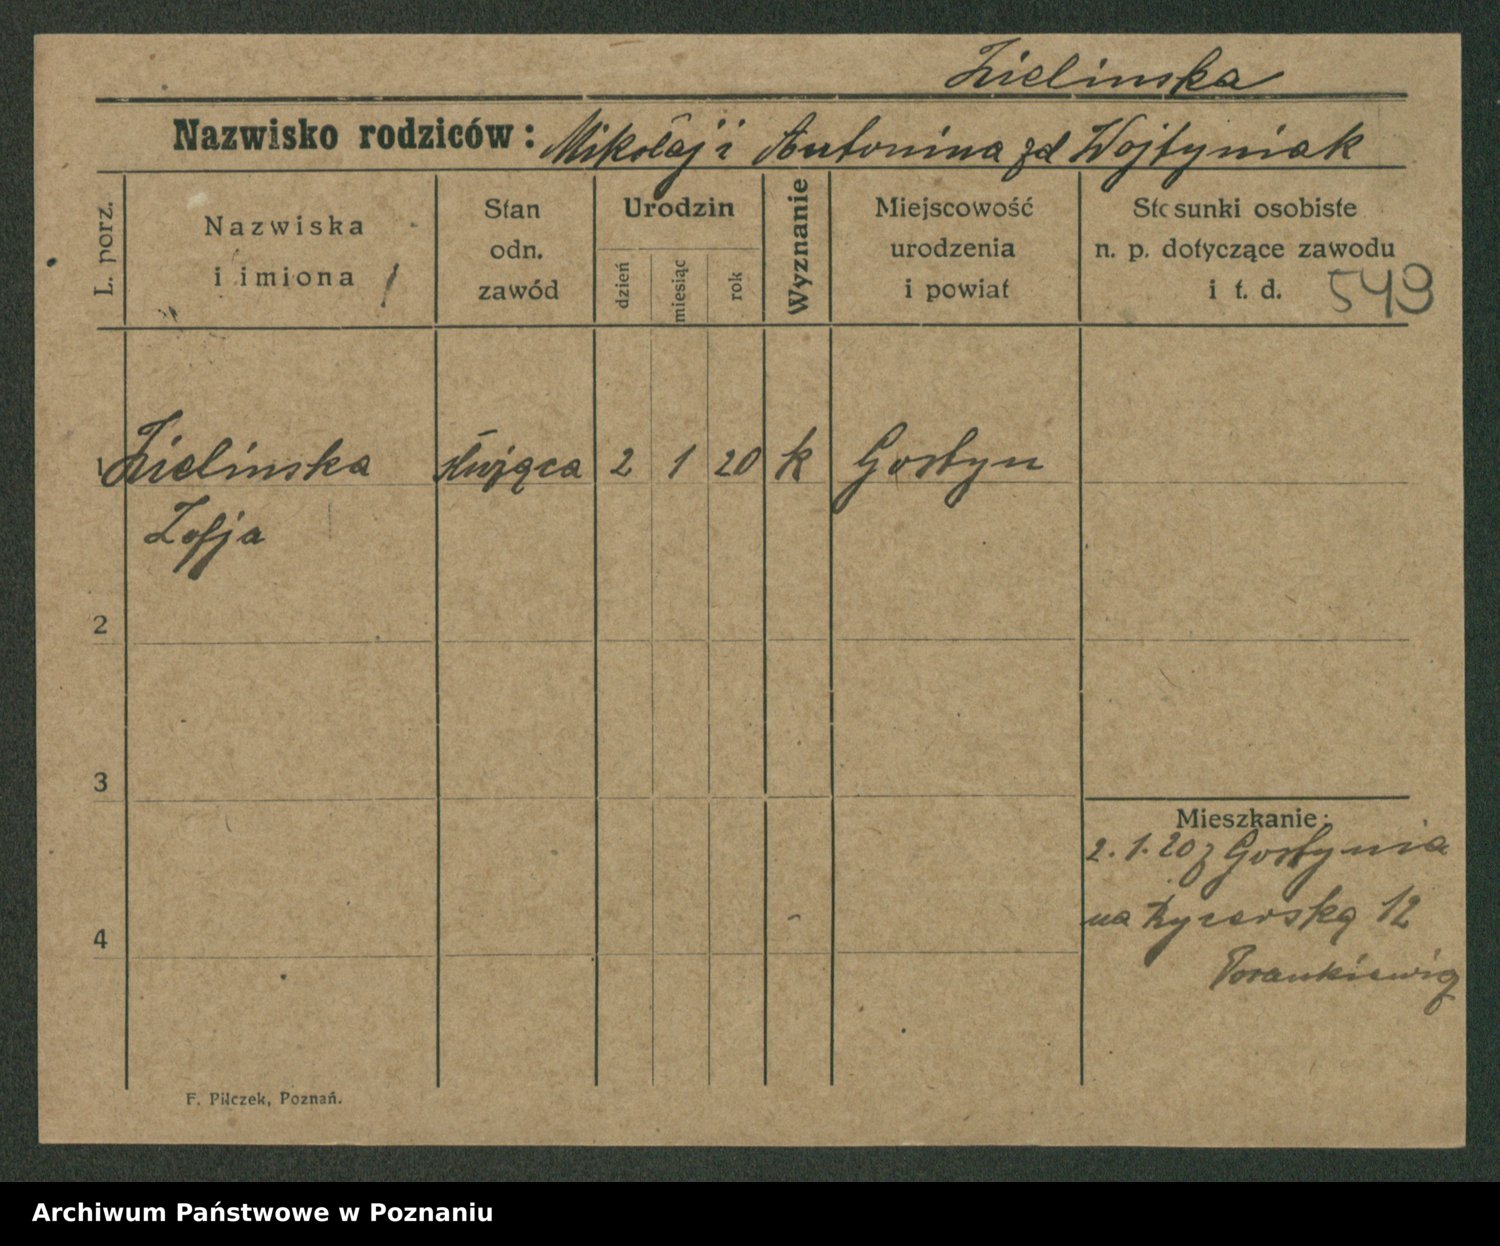 Zielinska
Nazwisko rodziców: Mikołaj i Antonina zd Wojtyniak
L. porz.
Nazwiska
i imiona
Stan
odn.
zawód
Urodzin
dzień
miesiąc
rok
Wyznanie
Miejscowość
urodzenia
i powiat
Stosunki osobiste
n. p. dotyczące zawodu
i t. d. 549
1 Zielinska służąca 2 1 20 k Gostyn
Zofja
2
3
4
Mieszkanie:
2. 1. 20 z Gostynia
na Rycerską 12
F. Pilczek, Poznań.
Archiwum Państwowe w Poznaniu